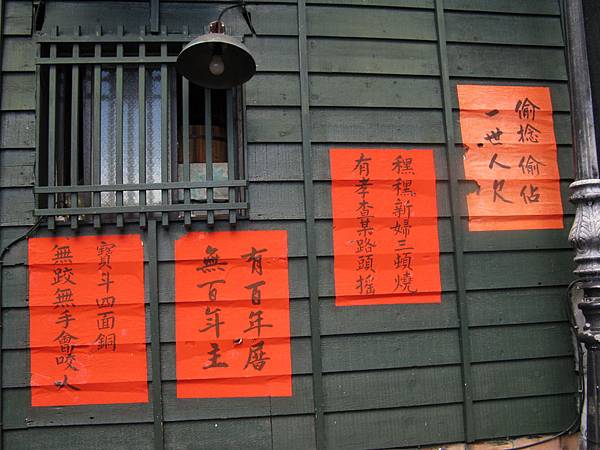 偷捻偷佔
一世人欠
䆀䆀新婦三頓燒
有孝查某路頭搖
有百年厝
無百年主
寶斗四面銅
無跤無手會咬人